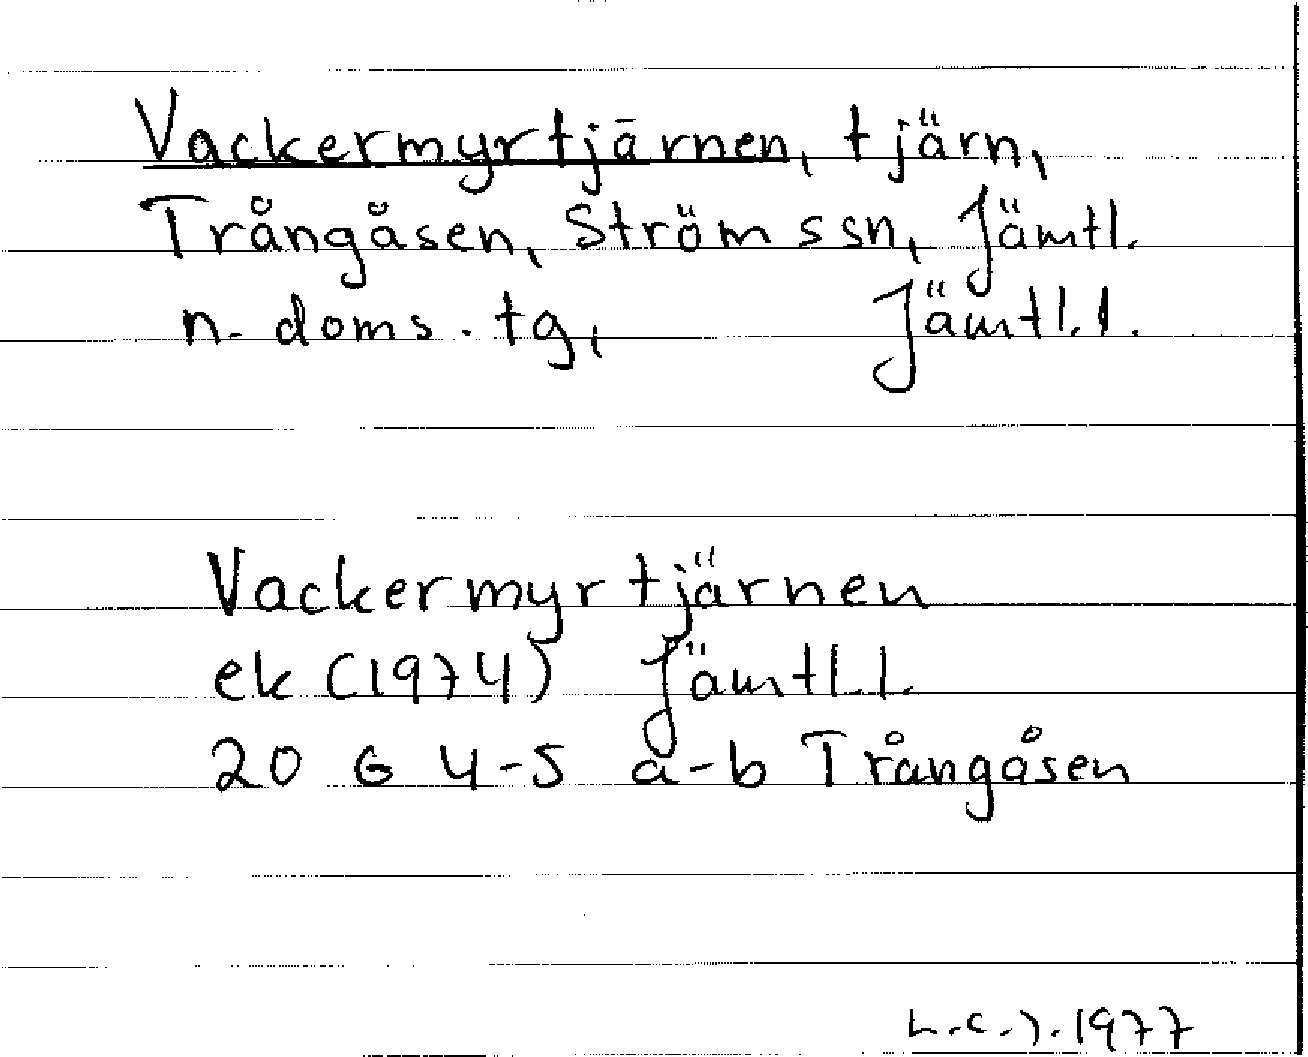 Vackermyrtjärnen, tjärn,
Trångåsen, Ströms sn, Jämtl.
n. doms. tg, Jämtl.l.
Vackermyrtjärnen
ek (1974) Jämtl.l.
20 G 4-5 a-b Trångåsen
L.C.J. 1977